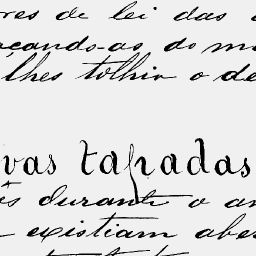 res de lei das
çando-as do m
lhes tolhia o de
vas tapadas
s durante o an
existiam aber